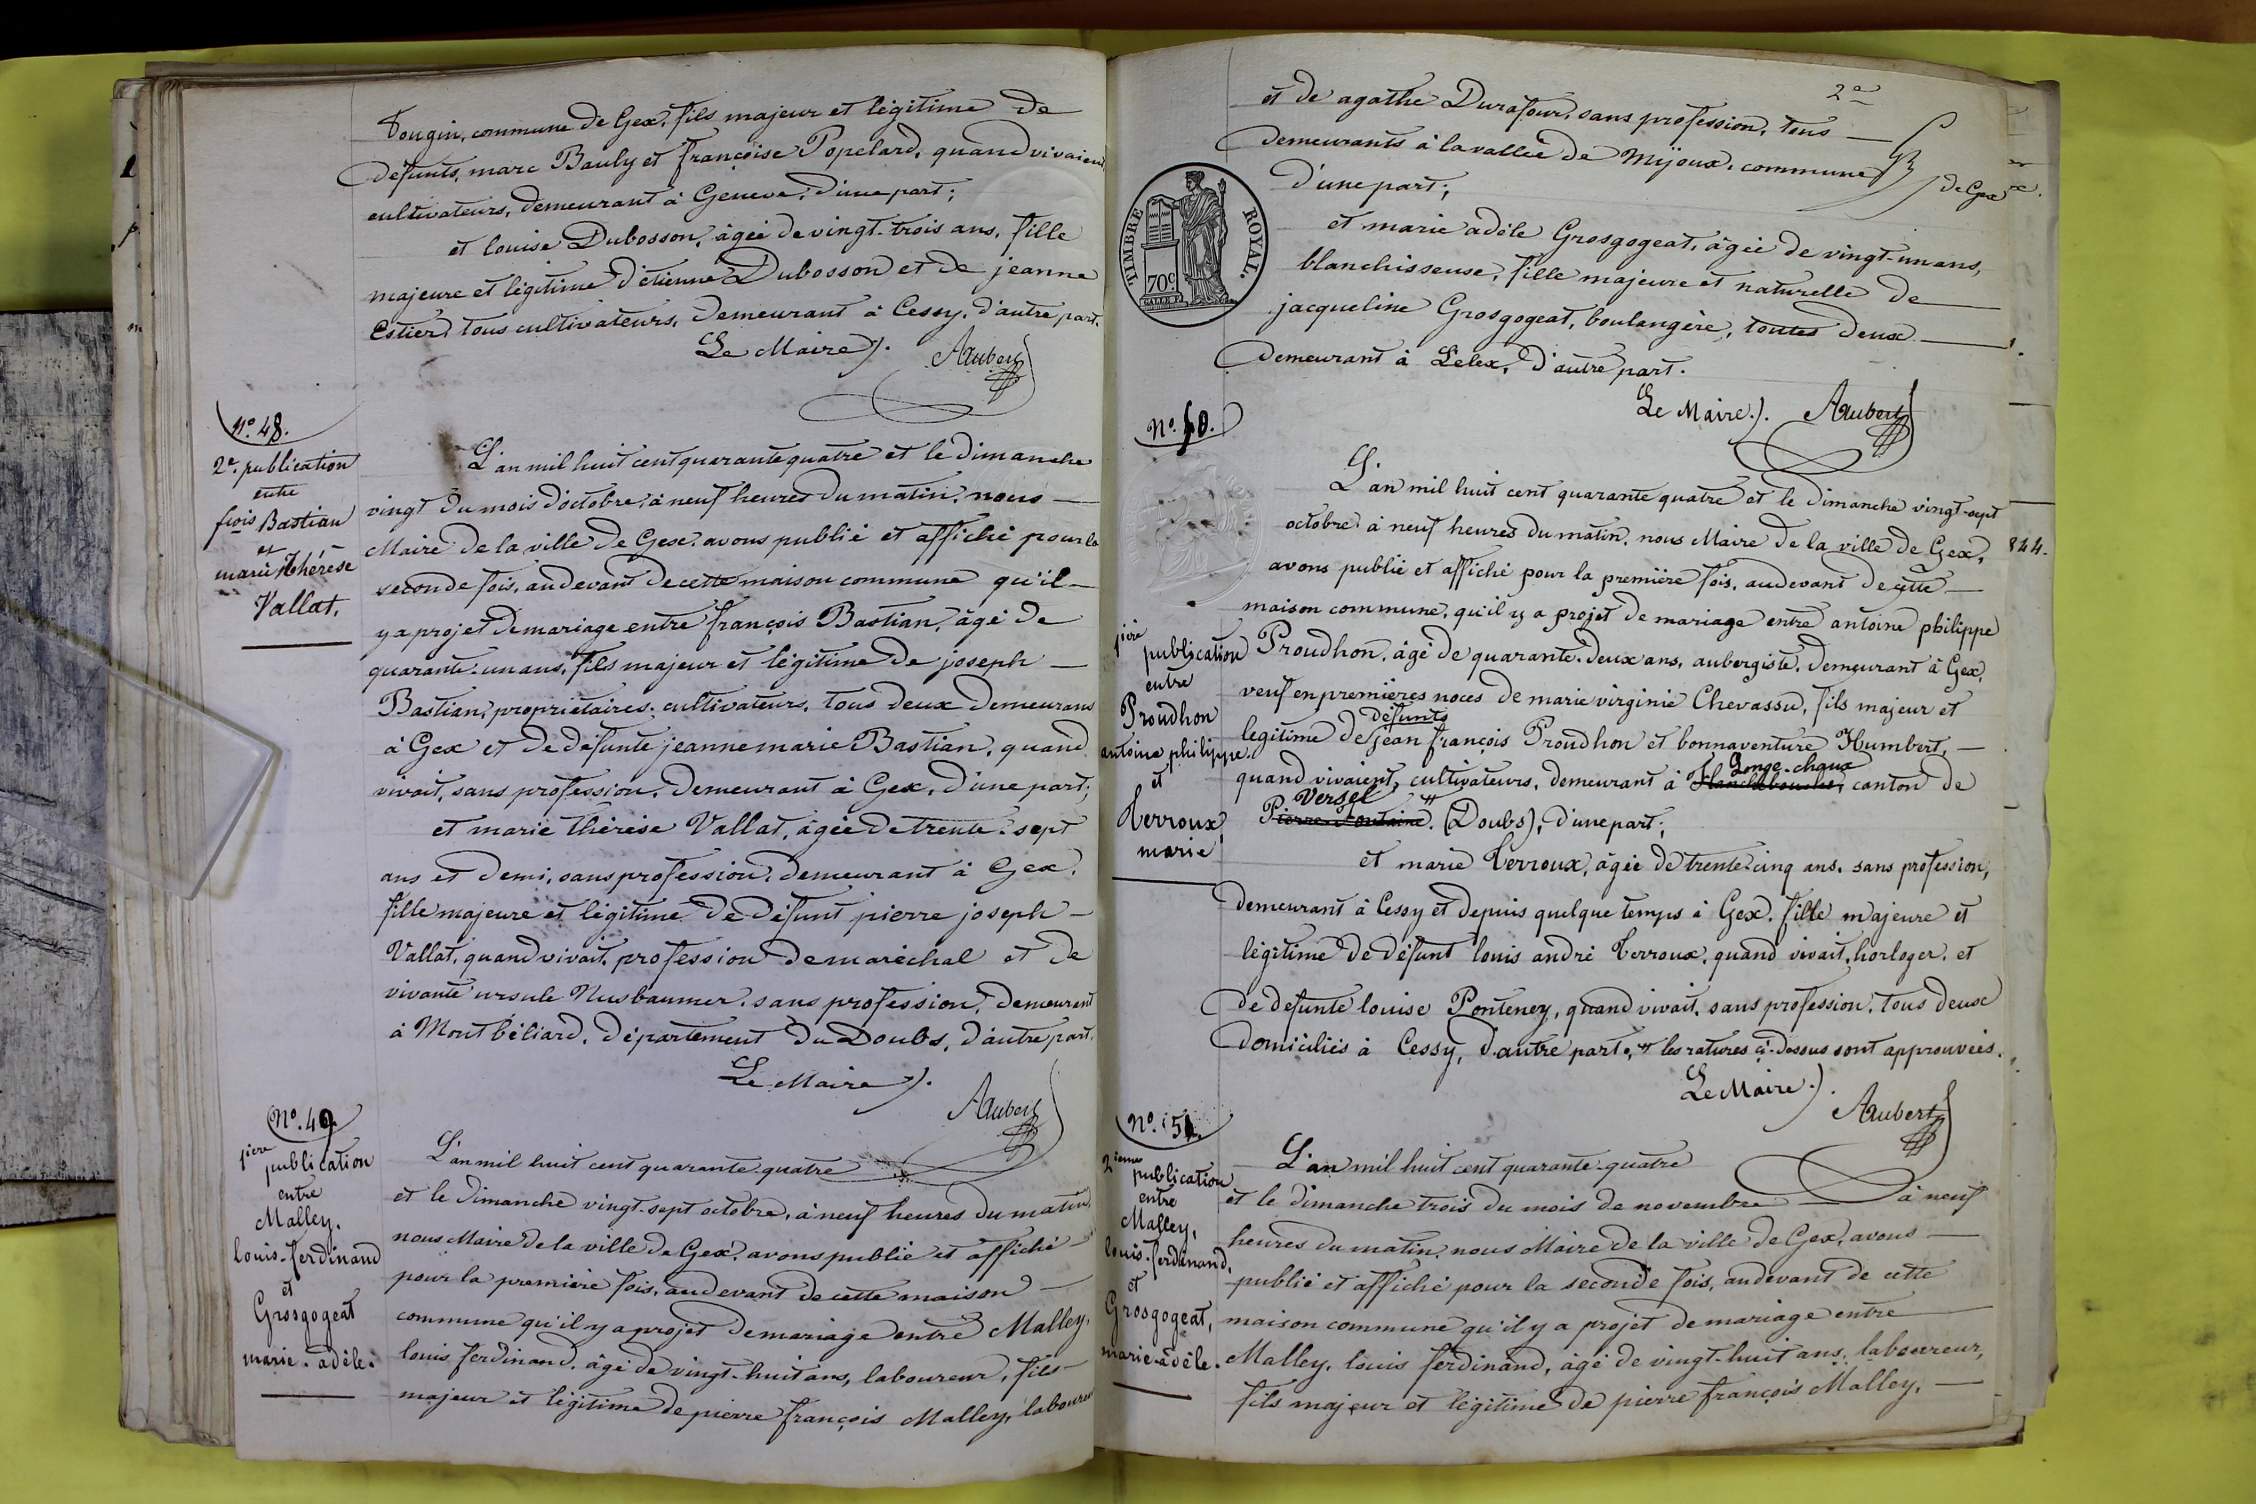 Tougin, commune de Gex, fils majeur et légitime de
défunts, marc Bauly et françoise Popelard, quand vivaient
cultivateurs, demeurant à Geneve, d'une part;
et louise Dubosson, âgée de vingt-trois ans, fille
majeure et légitime d'étienne Dubosson et de jeanne
Estier, tous cultivateurs, demeurant à Cessy, d'autre part.
Le Maire). AAubert
N.o 48.
2e. publication
entre
fçois Bastian
et
marie thérèse
Vallat.
L'an mil huit cent quarante quatre et le dimanche
vingt du mois d'octobre, à neuf heures du matin, nous
Maire de la ville de Gex, avons publié et affiché pour la
seconde fois, au devant de cette maison commune qu'il
y a projet de mariage entre françois Bastian, âgé de
quarante-un ans, fils majeur et légitime de joseph
Bastian, propriétaires-cultivateurs, tous deux demeurans
à Gex et de défunte jeanne marie Bastian, quand
vivait, sans profession, demeurant à Gex, d'une part;
et marie thérèse Vallat, âgée de trente-sept
ans et demi, sans profession, demeurant à Gex,
fille majeure et légitime de défunt pierre joseph
Vallat, quand vivait, profession de maréchal et de
vivante ursule Nusbaumer, sans profession, demeurant
à Montbéliard, département du Doubs, d'autre part.
Le Maire). AAubert
N.o 49.
1ière publication
entre
Malley,
louis-ferdinand
et
Grosgogeat
marie-adèle.
L'an mil huit cent quarante-quatre
et le dimanche vingt-sept octobre, à neuf heures du matin,
nous Maire de la ville de Gex, avons publié et affiché
pour la première fois, au devant de cette maison
commune qu'il y a projet de mariage entre Malley,
louis, ferdinand, âgé de vingt-huit ans, laboureur, fils
majeur et légitime de pierre françois Malley, laboureur
2e
et de agathe Durafour, sans profession, tous
demeurants à la vallée de Mijoux, commune
de Gex
d'une part;
TIMBRE ROYAL.
70c.
et marie adèle Grosgogeat, âgée de vingt-un ans,
blanchisseuse, fille majeure et naturelle de
jacqueline Grosgogeat, boulangère, toutes deux
demeurant à Lelex, d'autre part.
Le Maire). AAubert
N.o 50.
1ière publication
entre
Proudhon
antoine philippe.
et
Terroux
marie
L'an mil huit cent quarante quatre et le dimanche vingt-sept
octobre à neuf heures du matin, nous Maire de la ville de Gex,
844.
avons publié et affiché pour la première fois, au devant de cette
maison commune, qu'il y a projet de mariage entre antoine philippe
Proudhon, âgé de quarante-deux ans, aubergiste, demeurant à Gex,
veuf en premières noces de marie virginie Chevassu, fils majeur et
défunts
légitime de jean françois Proudhon et bonnaventure Humbert,
Longe-chaux
quand vivaient, cultivateurs, demeurant à canton de
Versel
Pierre-fontaine. (Doubs), d'une part;
et marie Terroux, âgée de trente-cinq ans, sans profession,
demeurant à Cessy et depuis quelque temps à Gex, fille majeure et
légitime de défunt louis andré Terroux, quand vivait, horloger, et
de defunte louise Ponteney, quand vivait, sans profession, tous deux
domiciliés à Cessy, d'autre part, les ratures ci-dessus sont approuvées.
Le Maire). AAubert
N.o 51.
2ieme publication
entre
Malley,
louis-ferdinand,
et
Grosgogeat,
marie-adèle.
L'an mil huit cent quarante-quatre
et le dimanche trois du mois de novembre à neuf
heures du matin, nous Maire de la ville de Gex, avons
publié et affiché pour la seconde fois, au devant de cette
maison commune qu'il y a projet de mariage entre
Malley, louis ferdinand, âgé de vingt-huit ans, laboureur,
fils majeur et légitime de pierre françois Malley,